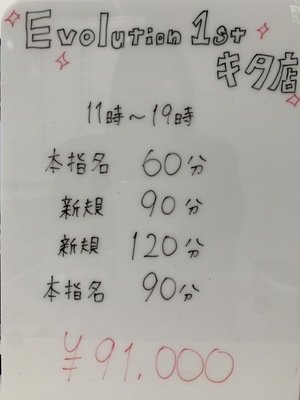 Evolution 1st
キタ店
11時～19時
本指名 60分
新規 90分
新規 120分
本指名 90分
¥91.000